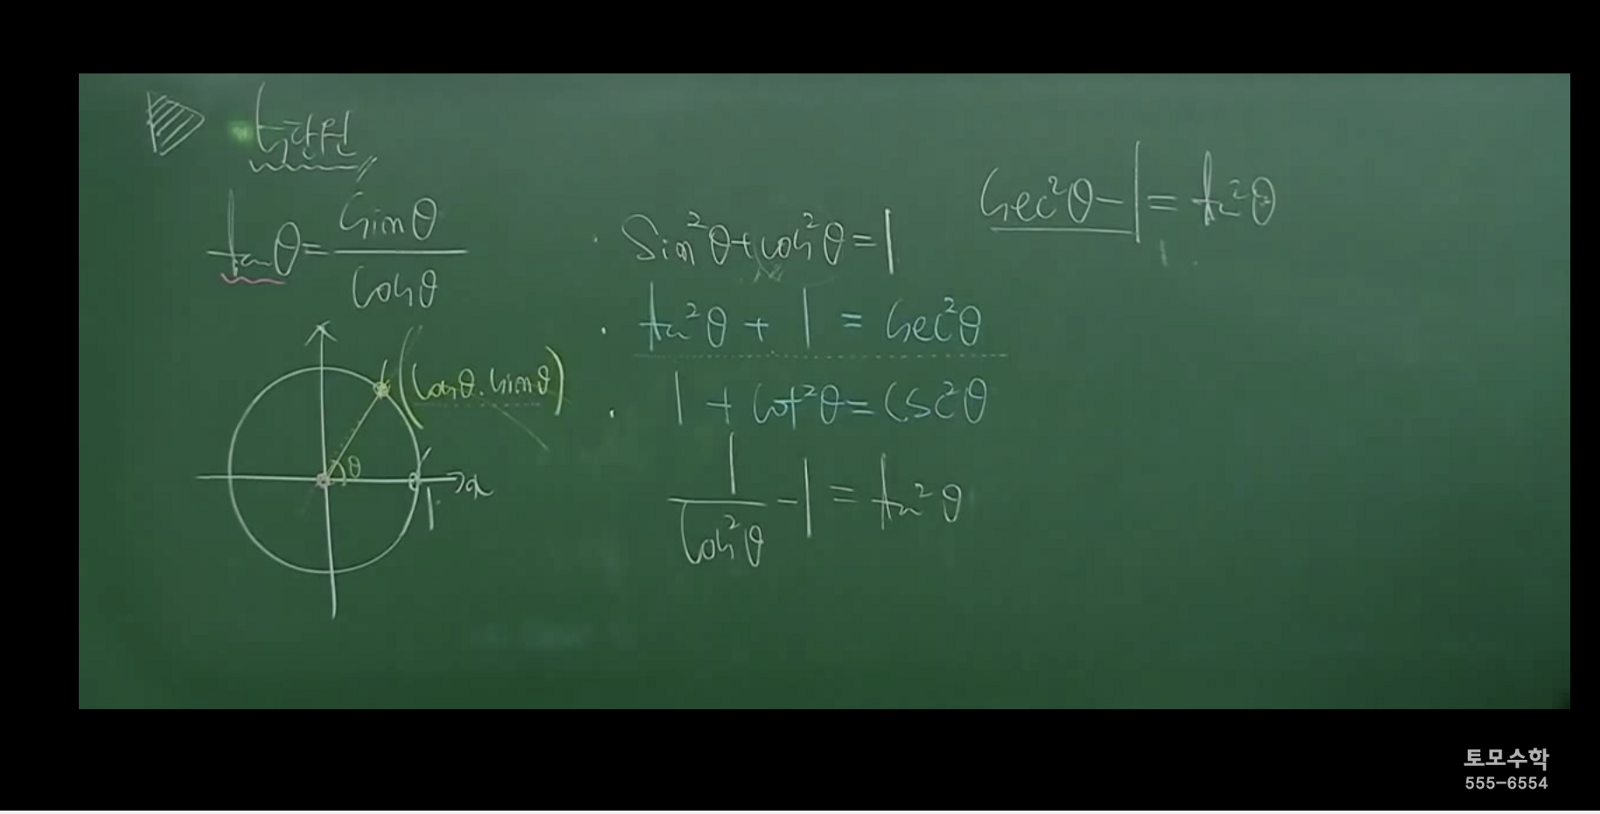 tanθ = sinθ / cosθ
(cosθ, sinθ)
θ
1
x
· sin²θ + cos²θ = 1
· tan²θ + 1 = sec²θ
· 1 + cot²θ = csc²θ
1 / cos²θ - 1 = tan²θ
sec²θ - 1 = tan²θ
토모수학
555-6554